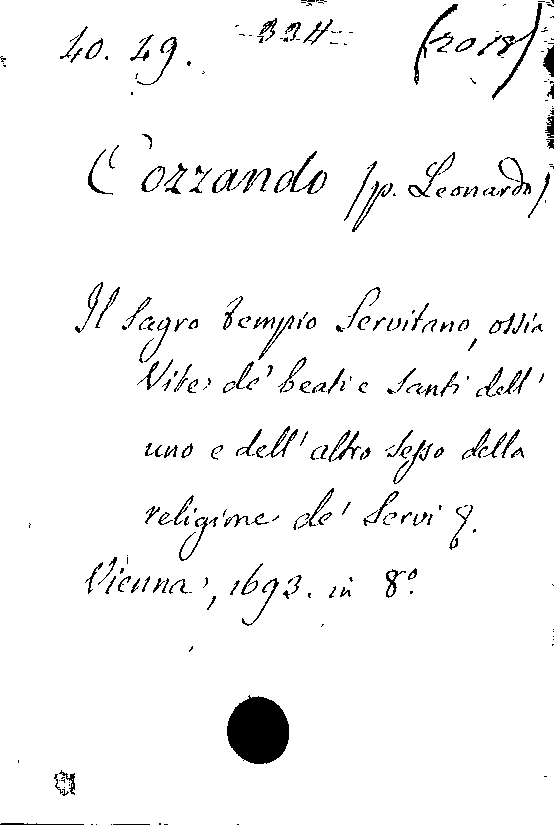 40. 49. 334 (2018)
Cozzando (p. Leonardo)
Il sagro tempio Servitano, ossia
Vite de' beati e santi dell'
uno e dell' altro sesso della
religione de' Servi &.
Vienna, 1693. in 8.º